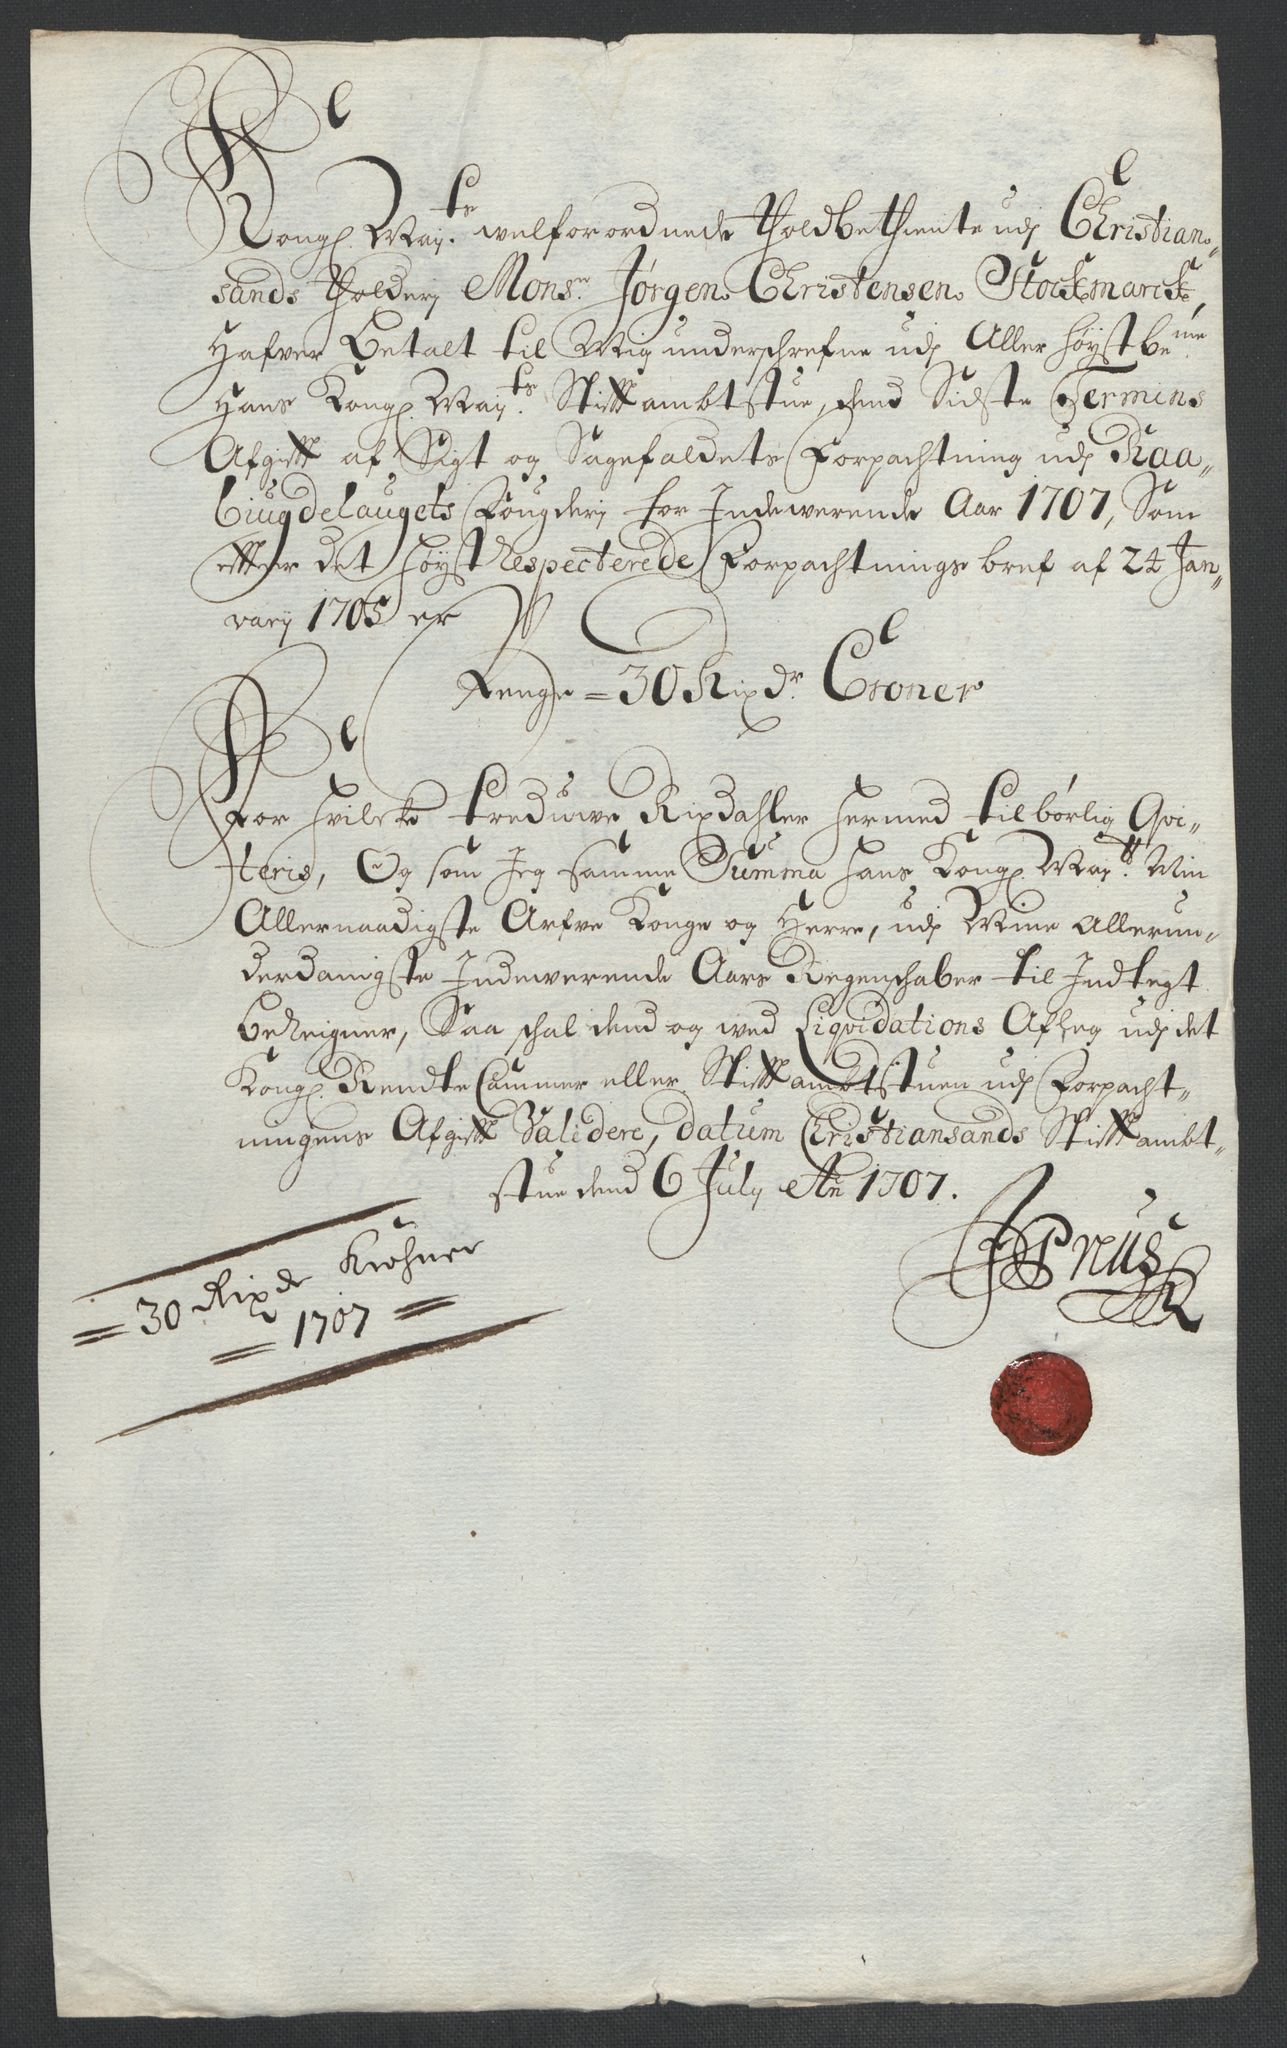 Kongl. May.ts welforordnede Tholdbethiente udj Christian-
sands Tholderj Mons.r Jørgen Christensen Stockmarck,
Hafver Betalt til Mig underschrefne udj Aller høystbe.me
Hans Kongl. May.ts Stiftambtstue, dend Sidste Termins
Afgift af Sigt og Sagefaldets Forpachtning udj Raa-
biugdelaugets Fougderj for Indewerende Aar 1707, Som
effter det høystrespecterede Forpachtnings bref af 24 Jan-
varij 1705 er
Penge = 30 Rixdr. Croner
For hvilcke treduwe Rixdahler hermed tilbørlig Qvi-
teris, Og som Jeg samme Summa hans Kongl. May.tt Min
Allernaadigste Arfve Konge og Herre, udj Mine Allerun-
derdanigste Indewerende Aars Regenschaber til Indtegt
bereigner, Saa schal dend og wed Liqvidations Afleg udj det
Kongl. Rendte Cammer eller Stiftambtstuen udj Forpacht-
ningens Afgift Validere, datum Christiansands Stiftambt-
stue dend 6 July Ao 1707.
= 30 Rixdr Krohner
= 1707 =